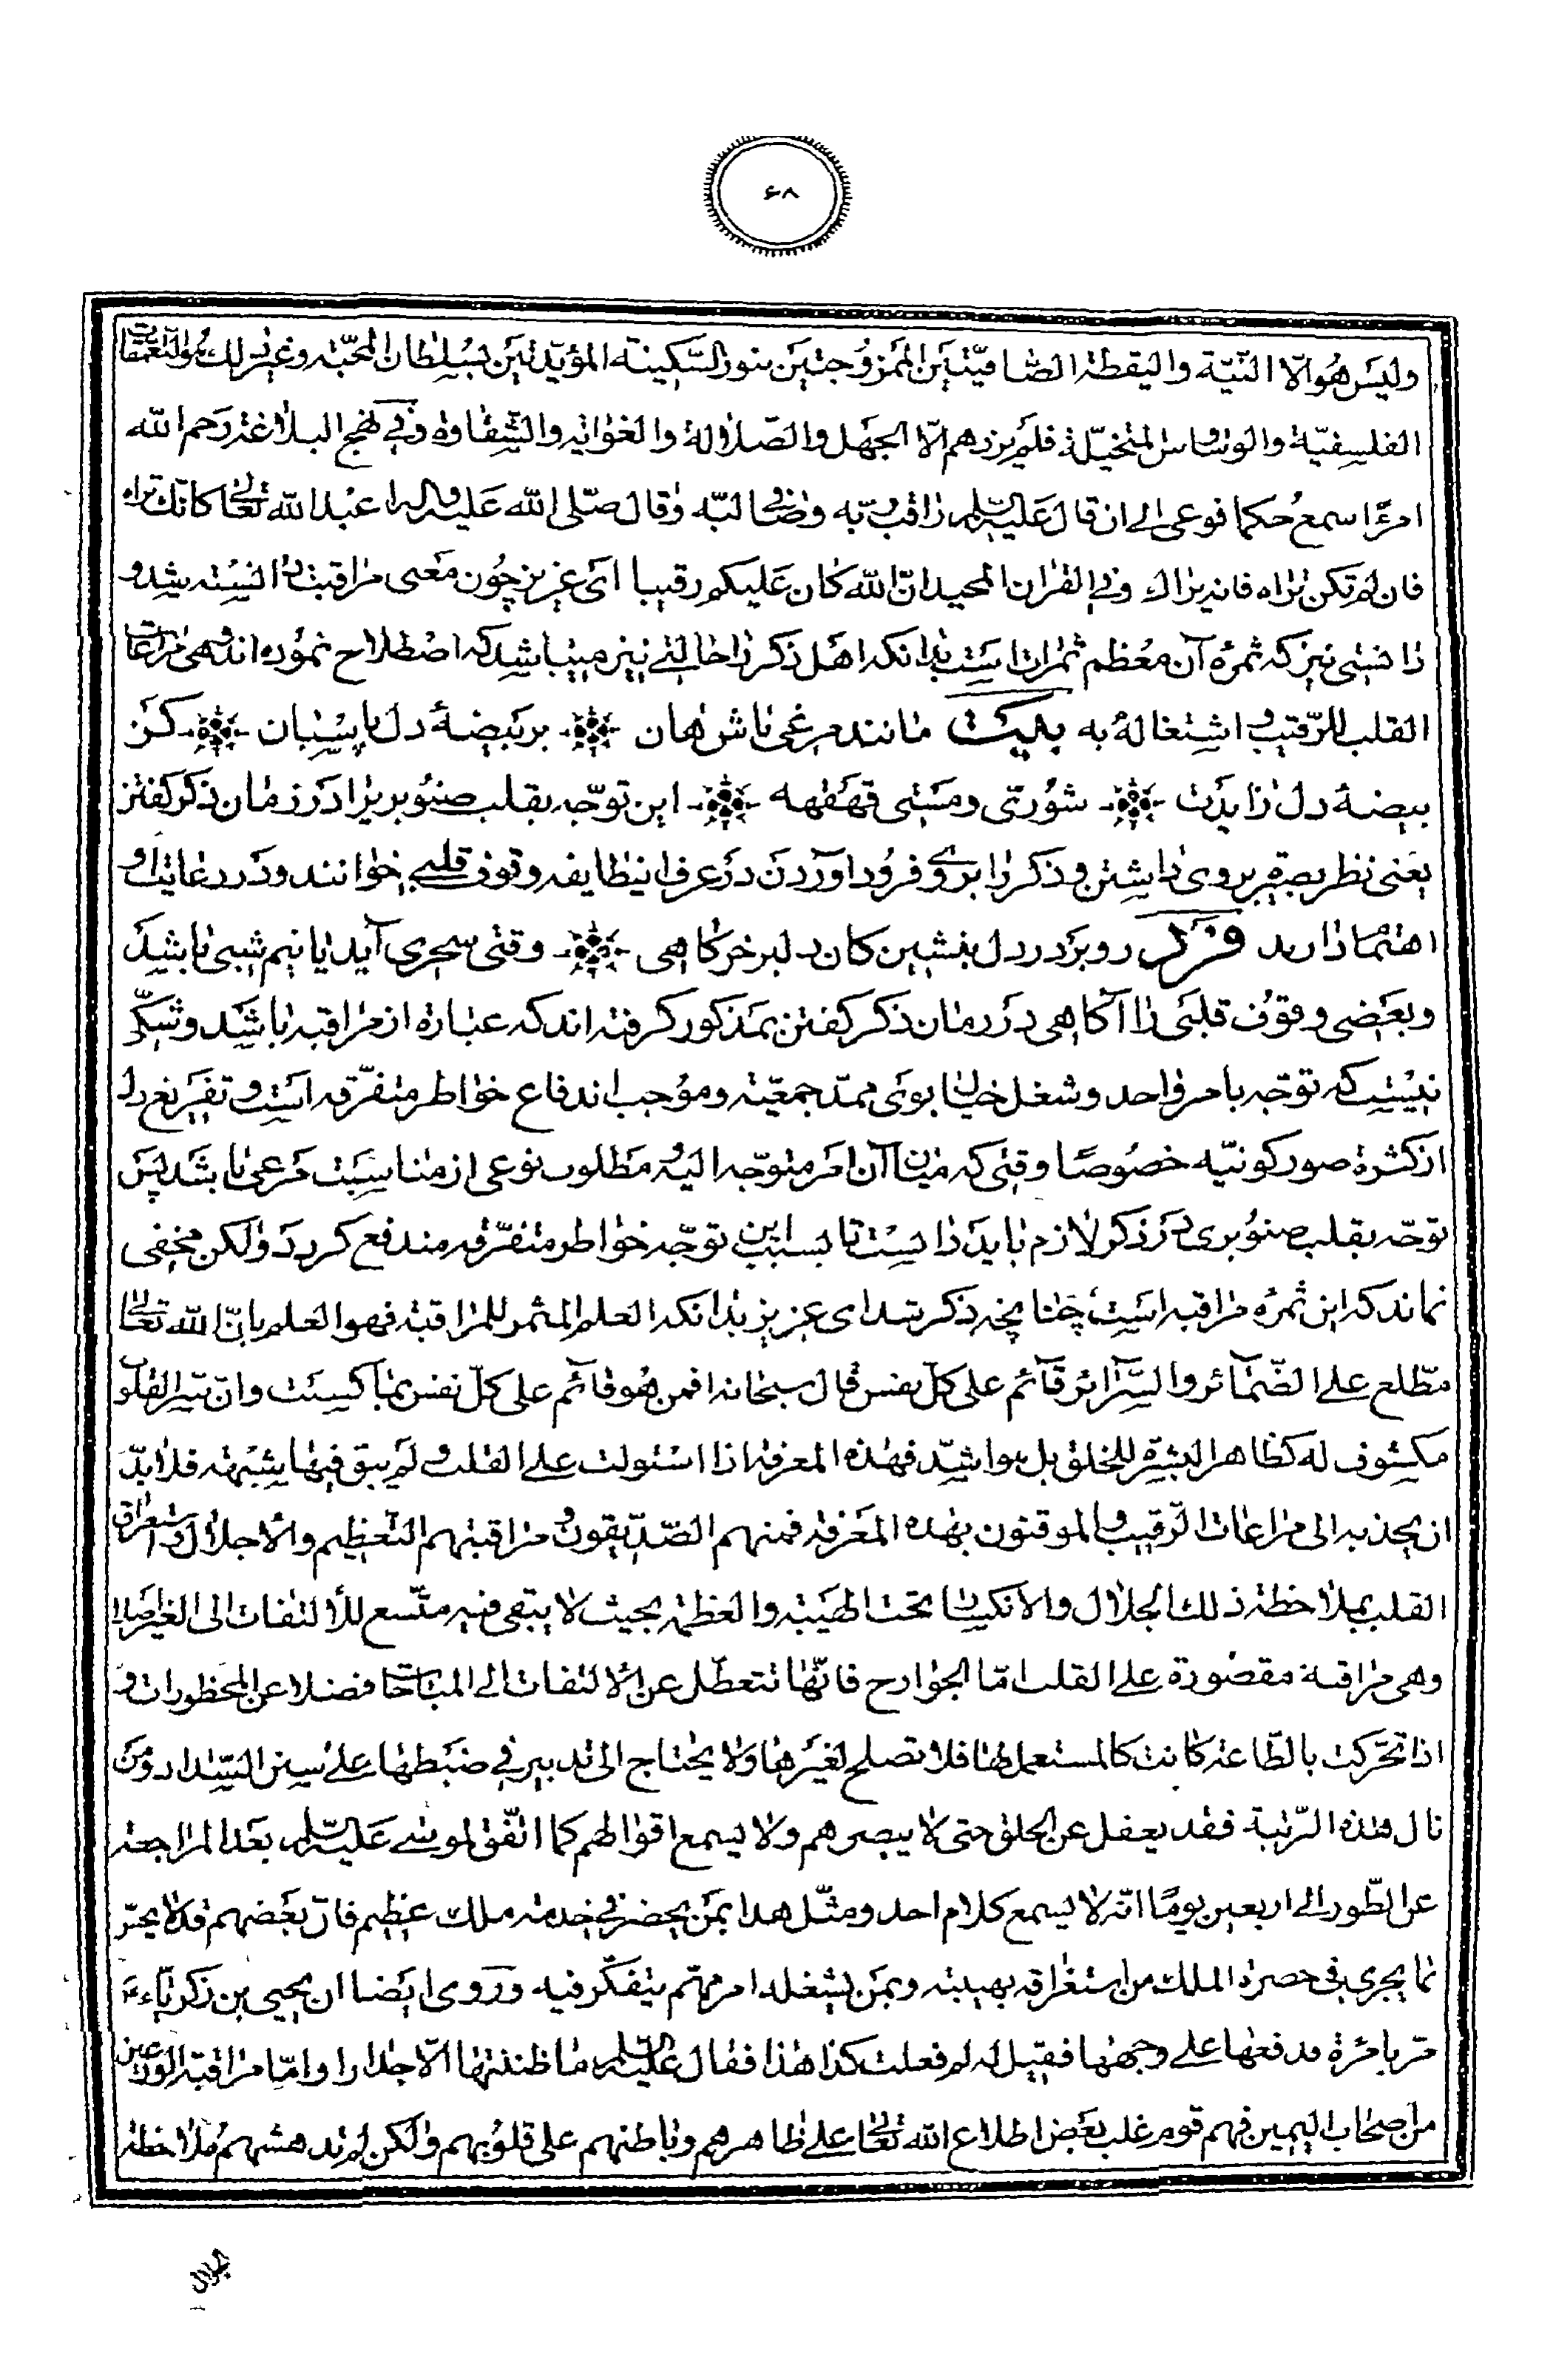 ۶۸
وليس هو الّا النّيّة واليقظة الصّافيتين الممزوجتين بنور السّكينة المؤيّدتين بسلطان المحبّة وغير ذلك والتعمّقات
الفلسفيّة والوساوس المتخيّلة فلم يزدهم الّا الجهل والضّلالة والغواية والشّقاوة وفي نهج البلاغة رحم الله
امرءًا سمع حكما فوعى الى ان قال عليه السّلم راقب ربّه وقال صلّى الله عليه واله اعبد الله تعالى كانّك تراه
فان لم تكن تراه فانه يراك وفي القران المجيد انّ الله كان عليكم رقيبا اى عزيز چون معنى مراقبت دانسته شد و
دانستى نيز كه ثمرهٔ آن معظم ثمرات است بدانكه اهل ذكر را حالتى نيز ميباشد كه اصطلاح نموده اند وهى مراعات
القلب للرّقيب واشتغاله به بيت مانند مرغى باش هان بر بيضهٔ دل پاسبان كز
بيضهٔ دل زايدت شورتى ومستى قهقهه اين توجّه بقلب صنوبريرا در زمان ذكر گفتن
يعنى نظر بصيره بروى داشتن و ذكر را بروى فرود اوردن در عرف اينطايفه وقوف قلبى خوانند و در رعايت او
اهتمام دارند فرد رو بر در دل بنشين كان دلبر خرگاهى وقتى سحرى آيد يا نيم شبى باشد
وبعضى وقوف قلبى را آگاهى در زمان ذكر گفتن بمذكور گرفته اند كه عباره از مراقبه باشد وشكّى
نيست كه توجّه بامر واحد وشغل خيال بوى ممدّ جمعيّة وموجب اندفاع خواطر متفرّقه است وتفريغ دل
از كثرة صور كونيّه خصوصًا وقتى كه ميان آن امر متوجّه اليه ومطلوب نوعى از مناسبت مرعى باشد پس
توجّه بقلب صنوبرى در ذكر لازم بايد دانست تا بسبب اين توجّه خواطر متفرّقه مندفع گردد ولكن مخفى
نماند كه اين ثمرهٔ مراقبه است چنانچه ذكر شد اى عزيز بدانكه العلم المثمر للمراقبة فهو العلم بانّ الله تعالى
مطّلع على الضّمائر والسّرائر قائم على كلّ نفس قال سبحانه افمن هو قائم على كلّ نفس بما كسبت وانّ سرّ القلوب
مكشوف له كظاهر البشرة للخلق بل هو اشدّ فهذه المعرفة اذا استولت على القلب ولم يبق فيها شبهة فلا بدّ
ان يجذبه الى مراعات الرّقيب والموقنون بهذه المعرفة فمنهم الصّدّيقون ومراقبتهم التّعظيم والاجلال واستغراق
القلب بملاحظة ذلك الجلال والانكسار تحت الهيبة والعظمة بحيث لا يبقى فيه متّسع للالتفات الى الغير اصلا
وهى مراقبة مقصورة على القلب امّا الجوارح فانّها تتعطّل عن الالتفات الى المباحات فضلا عن المحظورات و
اذا تحرّكت بالطّاعة كانت كالمستعمل لها فلا تصلح لغيرها ولا يحتاج الى تدبير في ضبطها على سنن السّداد ومن
نال هذه الرّتبة فقد يغفل عن الخلق حتى لا يبصرهم ولا يسمع اقوالهم كما اتّفق لموسى عليه السّلم بعد المراجعة
عن الطّور الى اربعين يومًا انّه لا يسمع كلام احد ومثّل هذا بمن يحضر في خدمة ملك عظيم فانّ بعضهم قد لا يحسّ
بما يجرى في حضرة الملك من استغراقه بهيبته وبمن يشغله امر مهمّ يتفكّر فيه وروى ايضا ان يحيى بن زكريّاء ع
مرّ بامرئة فدفعها على وجهها فقيل له لم فعلت كذا هذا فقال عليه السّلم ما ظننتها الّا جدارا وامّا مراقبة الورعين
من اصحاب اليمين فهم قوم غلب بعض اطلاع الله تعالى على ظاهرهم وباطنهم على قلوبهم ولكن لم تدهشهم ملاحظة